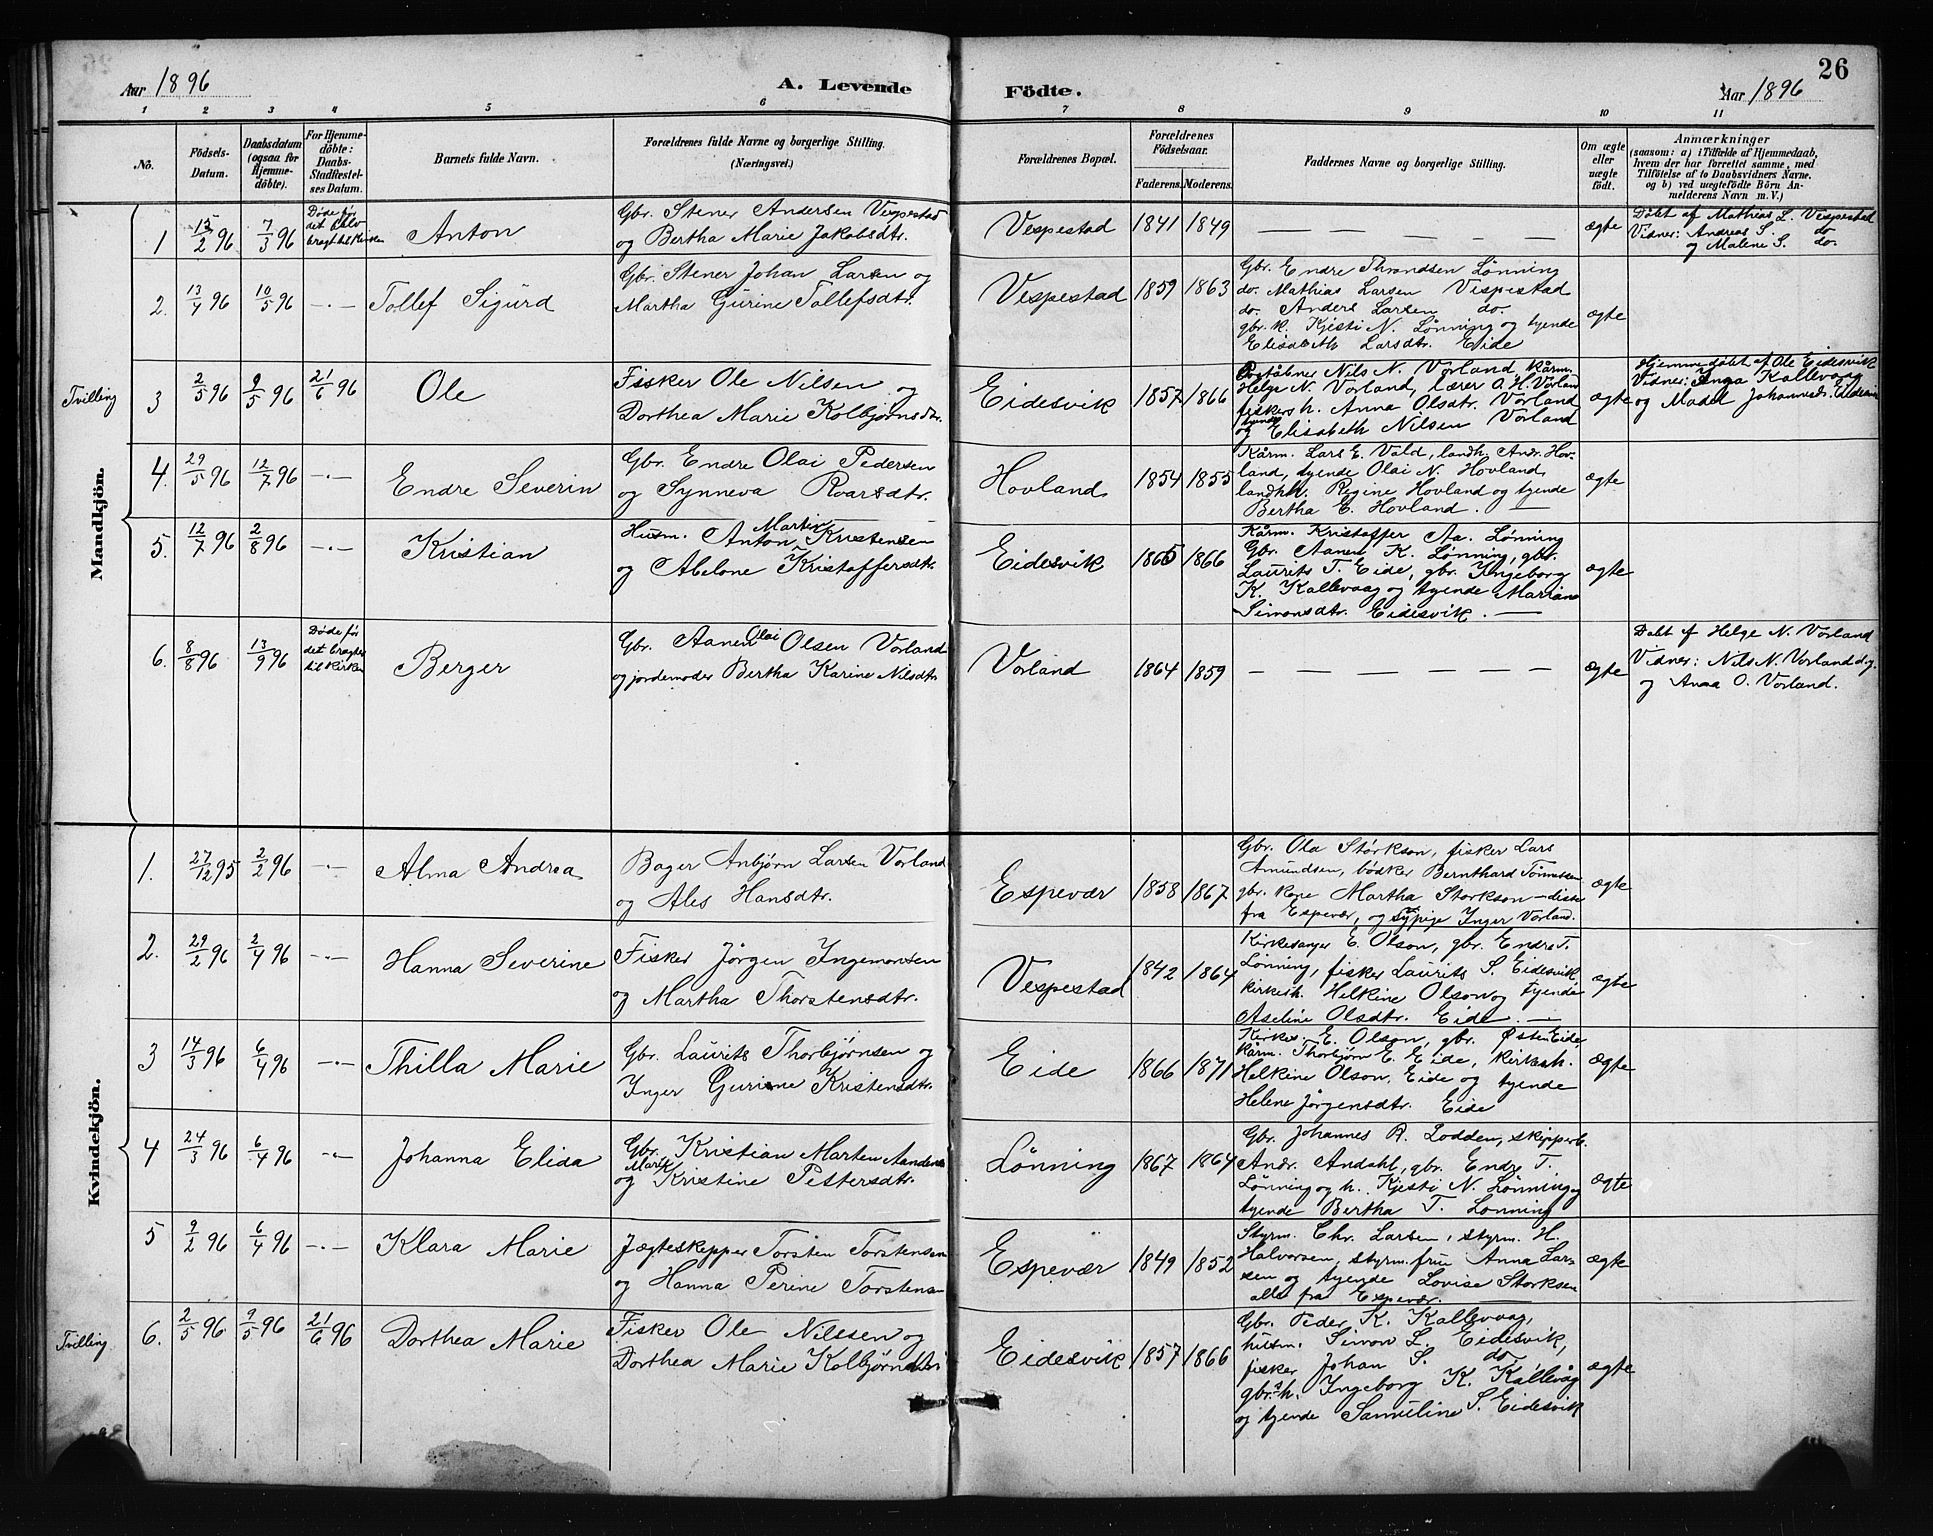 26
Aar 1896 A. Levende Födte. Aar 1896
1 2 3 4 5 6 7 8 9 10 11
No.
Födsels-Datum.
Daabsdatum (ogsaa for Hjemme-döbte).
For Hjemme-döbte: Daabs-Stadfæstel-ses Datum.
Barnets fulde Navn.
Forældrenes fulde Navne og borgerlige Stilling.
(Næringsvei.)
Forældrenes Bopæl.
Forældrenes Födselsaar.
Faderens. Moderens.
Faddernes Navne og borgerlige Stilling.
Om ægte eller uægte födt.
Anmærkninger
(saasom: a) i Tilfælde af Hjemmedaab,
hvem der har forrettet samme, med
Tilföielse af to Daabsvidners Navne.
og b) ved uegtefödte Börn An-
melderens Navn m. V.)
Mandkjön.
1 15/2 96 7/3 96 Døde før det blev bragt til Kirken
Anton
Gbr. Stener Andersen Vespestad
og Bertha Marie Jakobsdtr.
Vespestad 1841 1849 — — — — — ægte
Døbt af Mathias L. Vespestad
Vidner: Andreas S. do
og Malene S. do.
2. 13/4 96 10/5 96 -·-
Tollef Sigurd
Gbr. Stener Johan Larsen og
Martha Gurine Tollefsdtr.
Vespestad 1859 1863
Gbr. Endre Throndsen Lønning
do. Mathias Larsen Vespestad
do. Anders Larsen do.
gbr. k. Kjesti N. Lønning og tyende
Elisabeth Larsdtr. Eide
ægte
Tvilling 3 2/5 96 9/5 96 21/6 96
Ole
Fisker Ole Nilsen og
Dorthea Marie Kolbjørnsdtr.
Eidesvik 1857 1866
Postaabner Nils N. Vorland, kårm.
Helge N. Vorland, lærer O. H. Vorlan
fiskers h. Anna Olsdtr. Vorland
og tyende Elisabeth Nilsen Vorland
ægte
Hjemmedøbt af Ole Eidesvik
Vidner: Anna Kallevaag
og Madel Johannesdr.
4. 29/5 96 12/7 96 -·-
Endre Severin
Gbr. Endre Olai Pedersen
og Synneva Roarsdtr.
Hovland 1854 1855
Kårm. Lars E. Vald, landh. Andr. Hov-
land, tyende Olai N. Hovland,
landhh. Regine Hovland og tyende
Bertha E. Hovland. —
ægte
5. 12/7 96 2/8 96 -·-
Kristian
Husm. Anton Martin Kristensen
og Abelone Kristoffersdtr.
Eidesvik 1865 1866
Kårm. Kristoffer Aa. Lønning
Gbr. Aanen K. Lønning, gbr.
Laurits T. Eide, gbr. Ingeborg
K. Kallevaag og tyende Mariane
Simonsdtr. Eidesvik. —
ægte
6. 8/8 96 13/9 96 Døde før det bragtes til kirken
Berger
Gbr. Aanen Olai Olsen Vorland
og jordemoder Bertha Karine Nilsdtr
Vorland 1864 1859 — — — — — — ægte
Døbt af Helge N. Vorland
Vidner: Nils N. Vorland
og Anna O. Vorland.
Kvindekjön.
1. 27/12 95 2/2 96 -·-
Alma Andrea
Bager Anbjørn Larsen Vorland
og Ales Hansdtr.
Espevær 1858 1867
Gbr. Ola Størkson, fisker Lars
Amundsen, bødker Bernthard Tønnesen
gbr. kone Martha Størkson — disse
fra Espevær, og sypige Inger Vorland.
ægte
2. 29/2 96 2/4 96 -·-
Hanna Severine
Fisker Jørgen Ingemonsen
og Martha Thorstensdtr.
Vespestad 1842 1864
Kirkesanger E. Olson, gbr. Endre T.
Lønning, fisker Laurits S. Eidesvik
kirkesh. Helkine Olson og tyende
Aseline Olsdtr. Eide. —
ægte
3 14/3 96 6/4 96 -·-
Thilla Marie
Gbr. Laurits Thorbjørnsen og
Inger Gurine Kristensdtr.
Eide 1866 1871
Kirkes. E. Olson, gbr. Østen Eide
kårm. Thorbjørn E. Eide, kirkesh.
Helkine Olson, Eide og tyende
Helene Jørgensdtr. Eide
ægte
4 24/3 96 6/4 96 -·-
Johanna Elida
Gbr. Kristian Marten Aandens
og Marit Kristine Pettersdtr.
Lønning 1867 1864
Gbr. Johannes A. Lodden, skipper
Andr. Andahl, gbr. Endre T.
Lønning og h. Kjesti N. Lønning og
tyende Bertha T. Lønning
ægte
5 9/2 96 6/4 96 -·-
Klara Marie
Jægteskipper Torsten Torstensen
og Hanna Perine Torstensen
Espevær 1849 1852
Styrm. Chr. Larsen, styrm. H.
Halvorsen, styrm. frue Anna Lar-
sen og tyende Lovise Storksen
alle fra Espevær.
ægte
Tvilling 6. 2/5 96 9/5 96 21/6 96
Dorthea Marie
Fisker Ole Nilssen og
Dorthea Marie Kolbjørnsdtr
Eidesvik 1857 1866
Gbr. Peder K. Kallevaag,
husm. Simon L. Eidesvik,
fisker Johan S. do.
gbr. h. Ingeborg K. Kallevåg
og tyende Samuline S. Eidesvik
ægte